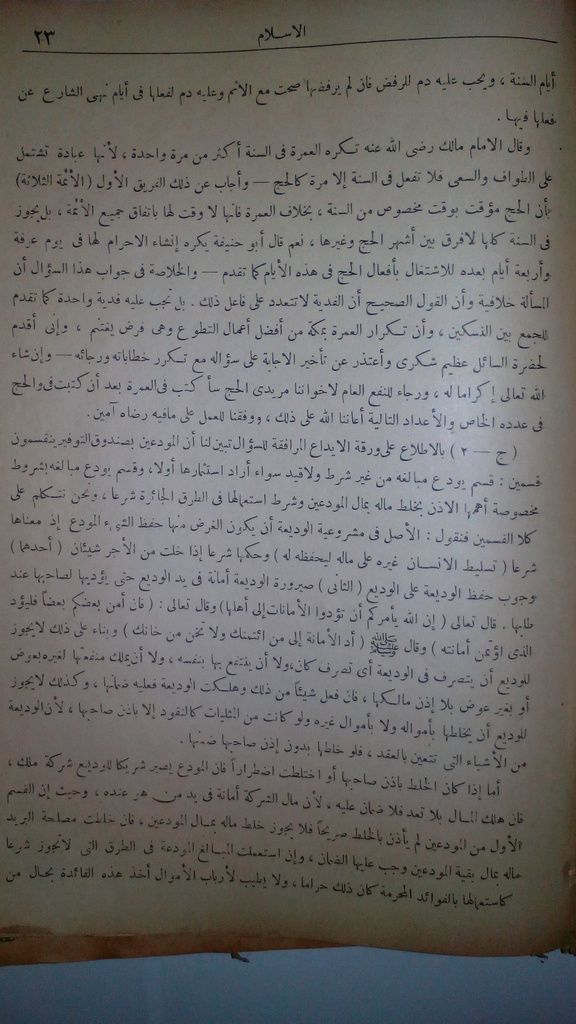 الاسلام
٢٣
أيام السنة ، ويجب عليه دم للرفض فان لم يرفضها صحت مع الاثم وعليه دم لفعلها فى أيام نهى الشارع عن
فعلها فيها .
وقال الامام مالك رضى الله عنه تكره العمرة فى السنة أكثر من مرة واحدة ، لأنها عبادة تشتمل
على الطواف والسعى فلا تفعل فى السنة إلا مرة كالحج — وأجاب عن ذلك الفريق الأول (الأئمة الثلاثة)
بأن الحج مؤقت بوقت مخصوص من السنة ، بخلاف العمرة فانها لا وقت لها باتفاق جميع الأئمة ، بل يجوز
فى السنة كلها لا فرق بين أشهر الحج وغيرها ، نعم قال أبو حنيفة يكره إنشاء الاحرام لها فى يوم عرفة
وأربعة أيام بعده للاشتغال بأفعال الحج فى هذه الأيام كما تقدم — والخلاصة فى جواب هذا السؤال أن
المسألة خلافية وأن القول الصحيح أن الفدية لا تتعدد على فاعل ذلك . بل تجب عليه فدية واحدة كما تقدم
للجمع بين النسكين ، وأن تكرار العمرة بمكة من أفضل أعمال التطوع وهى فرض يغتنم ، وإنى أقدم
لحضرة السائل عظيم شكرى وأعتذر عن تأخير الاجابة على سؤاله مع تكرر خطاباته ورجائه — وإن شاء
الله تعالى إكراما له ، ورجاء للنفع العام لاخواننا مريدى الحج سأكتب فى العمرة بعد أن كتبت فى والحج
فى عدده الخاص والأعداد التالية أعاننا الله على ذلك ، ووفقنا للعمل على مافيه رضاه آمين .
( ج — ٢ ) بالاطلاع على ورقة الايداع المرافقة للسؤال تبين لنا أن المودعين بصندوق التوفير ينقسمون
قسمين : قسم يودع مبالغه من غير شرط ولا قيد سواء أراد استثمارها أولا، وقسم يودع مبالغه بشروط
مخصوصة أهمها الاذن بخلط ماله بمال المودعين وشرط استعمالها فى الطرق الجائزة شرعا ، ونحن نتكلم على
كلا القسمين فنقول : الأصل فى مشروعية الوديعة أن يكون الغرض منها حفظ الشىء المودع إذ معناها
شرعا ( تسليط الانسان غيره على ماله ليحفظه له ) وحكمها شرعا إذا خلت من الأجر شيئان ( أحدهما )
وجوب حفظ الوديعة على الوديع ( الثانى ) صيرورة الوديعة أمانة فى يد الوديع حتى يؤديها لصاحبها عند
طلبها . قال تعالى ( إن الله يأمركم أن تؤدوا الأمانات إلى أهلها ) وقال تعالى : ( فان أمن بعضكم بعضا فليؤد
الذى اؤتمن أمانته ) وقال ﷺ ( أد الأمانة إلى من ائتمنك ولا تخن من خانك ) وبناء على ذلك لا يجوز
للوديع أن يتصرف فى الوديعة أى تصرف كان، ولا أن ينتفع بها بنفسه ، ولا أن يملك منفعتها لغيره بعوض
أو بغير عوض بلا إذن مالكها ، فان فعل شيئاً من ذلك وهلكت الوديعة فعليه ضمانها ، وكذلك لا يجوز
للوديع أن يخلطها بأمواله ولا بأموال غيره ولو كانت من المثليات كالنقود إلا باذن صاحبها ، لأن الوديعة
من الأشياء التى تتعين بالعقد ، فلو خلطها بدون إذن صاحبها ضمنها .
أما إذا كان الخلط باذن صاحبها أو اختلطت اضطراراً فان المودع يصير شريكا للوديع شركة ملك ،
فان هلك المال بلا تعد فلا ضمان عليه ، لأن مال الشركة أمانة فى يد من هو عنده ، وحيث إن القسم
الأول من المودعين لم يأذن بالخلط صريحاً فلا يجوز خلط ماله بمال المودعين ، فان خلطت مصلحة البريد
ماله بمال بقية المودعين وجب عليها الضمان ، وإن استعملت المبالغ المودعة فى الطرق التى لا تجوز شرعا
كاستعمالها بالفوائد المحرمة كان ذلك حراما ، ولا يطيب لأرباب الأموال أخذ هذه الفائدة بحال من